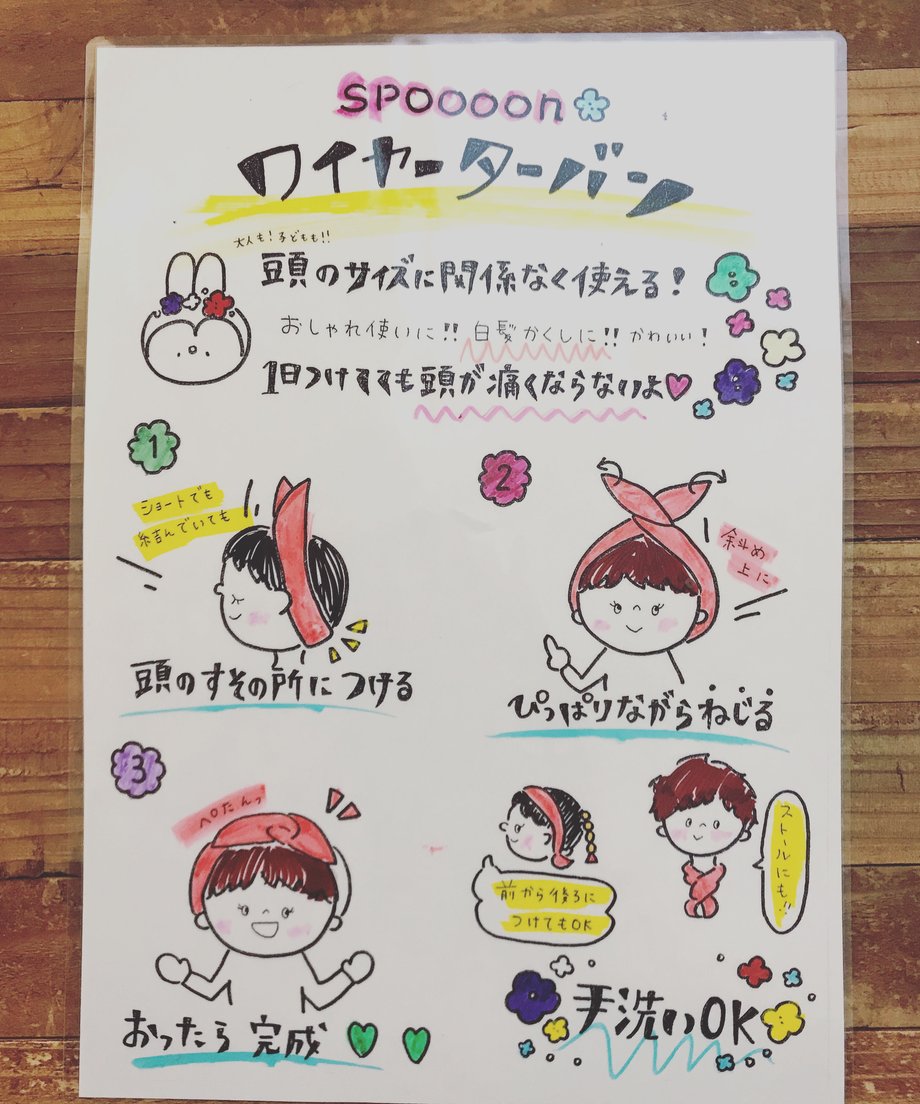 SPOOOOn
ワイヤーターバン
大人も!子どもも!!
頭のサイズに関係なく使える!
おしゃれ使いに!! 白髪かくしに!! かわいい!
1日つけてても頭が痛くならないよ
1
ショートでも
結んでいても
頭のすその所につける
2
斜め
上に
ぴっぱりながらねじる
3
ペたんっ
おったら完成
前から後ろに
つけてもOK
ストールにも!!
手洗いOK